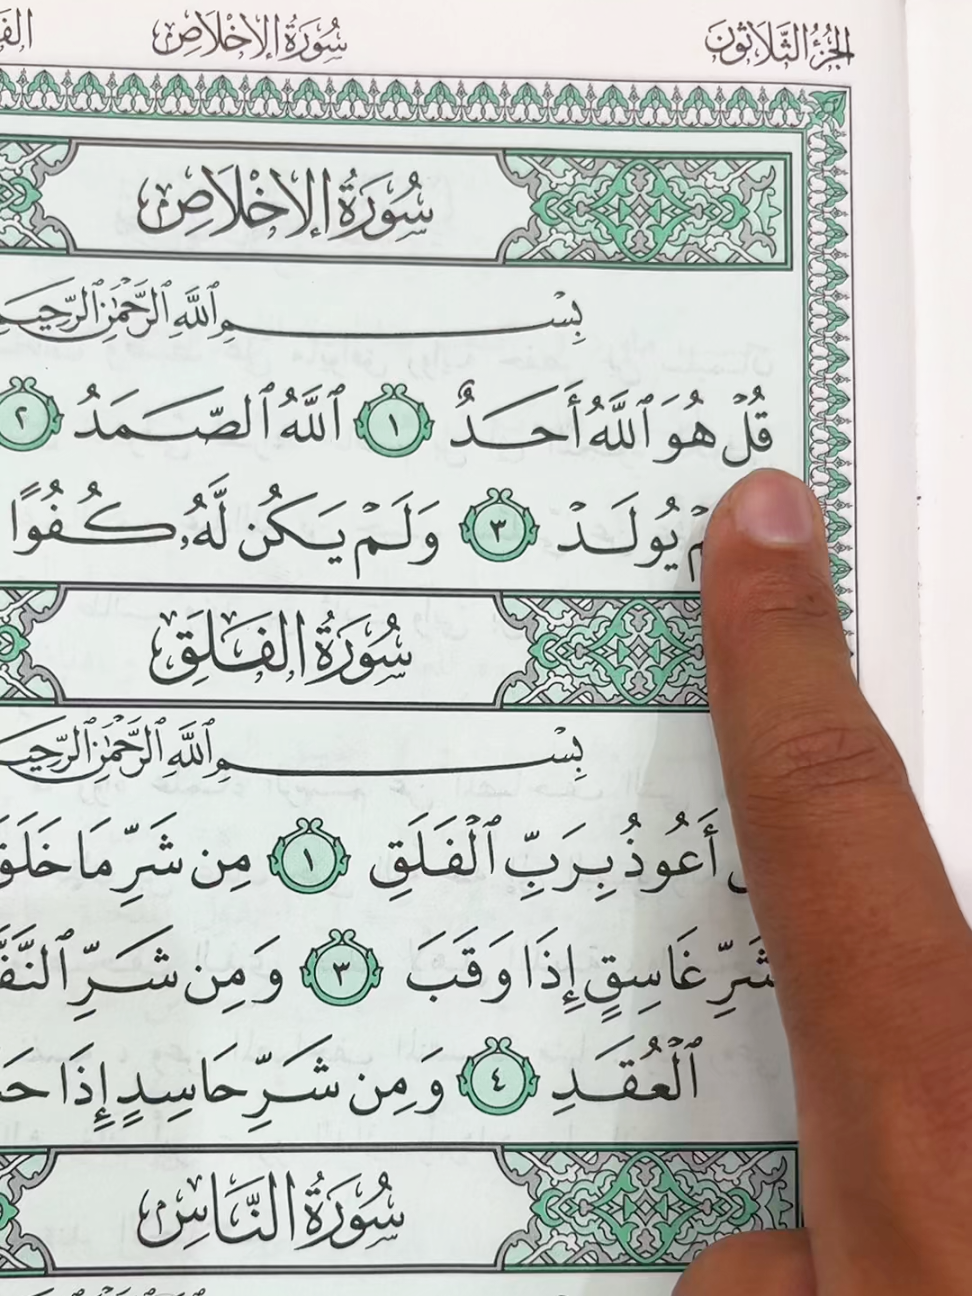 الجزء الثلاثون سورة الإخلاص
سُورَةُ الإِخْلَاصِ
بِسْمِ ٱللَّهِ ٱلرَّحْمَٰنِ ٱلرَّحِيمِ
قُلْ هُوَ ٱللَّهُ أَحَدٌ ١ ٱللَّهُ ٱلصَّمَدُ ٢
يُولَدْ ٣ وَلَمْ يَكُن لَّهُۥ كُفُوًا
سُورَةُ الفَلَقِ
بِسْمِ ٱللَّهِ ٱلرَّحْمَٰنِ ٱلرَّحِيمِ
أَعُوذُ بِرَبِّ ٱلْفَلَقِ ١ مِن شَرِّ مَا خَلَقَ
شَرِّ غَاسِقٍ إِذَا وَقَبَ ٣ وَمِن شَرِّ
ٱلْعُقَدِ ٤ وَمِن شَرِّ حَاسِدٍ إِذَا
سُورَةُ النَّاسِ